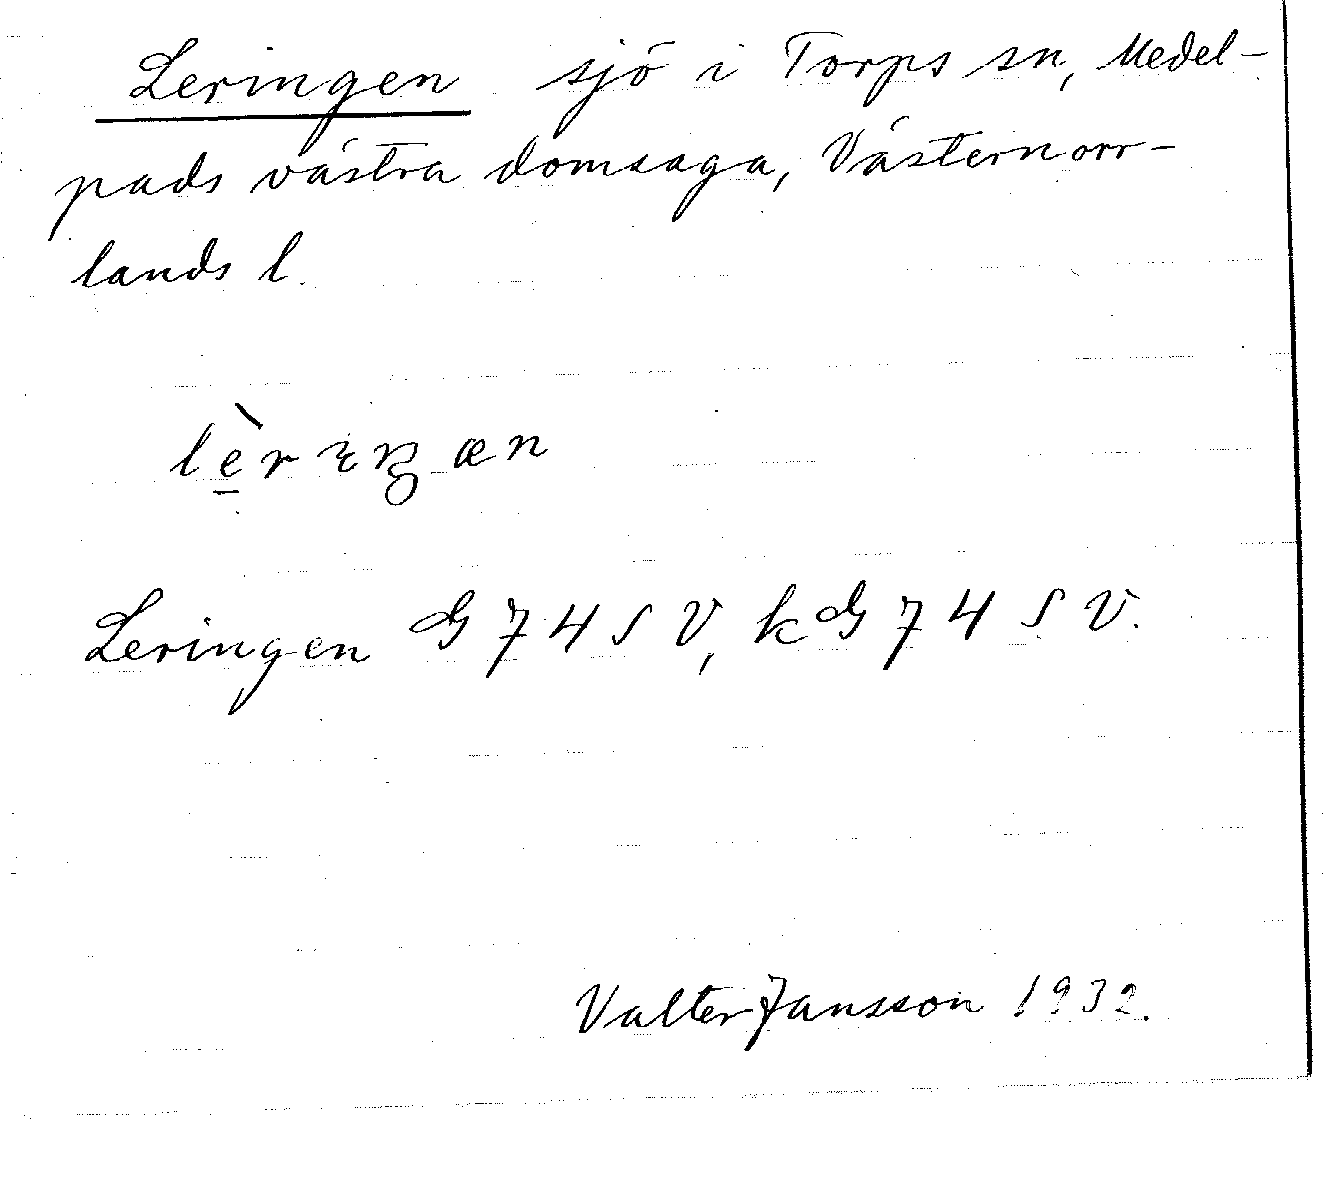 Leringen sjö i Torps sn, Medel-
pads västra domsaga, Västernorr-
lands l.
lè̠rɪŋæn
Leringen G 74 S V, kG 74 S V.
Valter Jansson 1932.